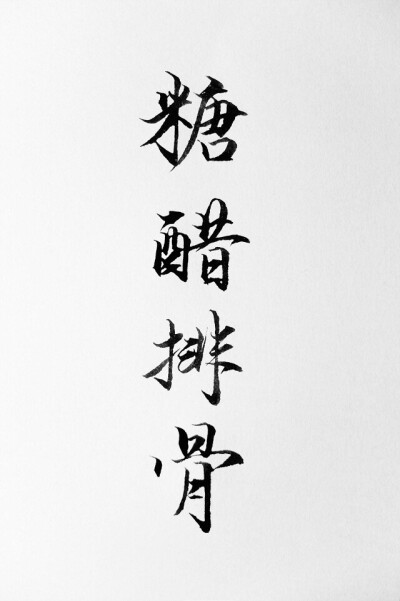 糖醋排骨